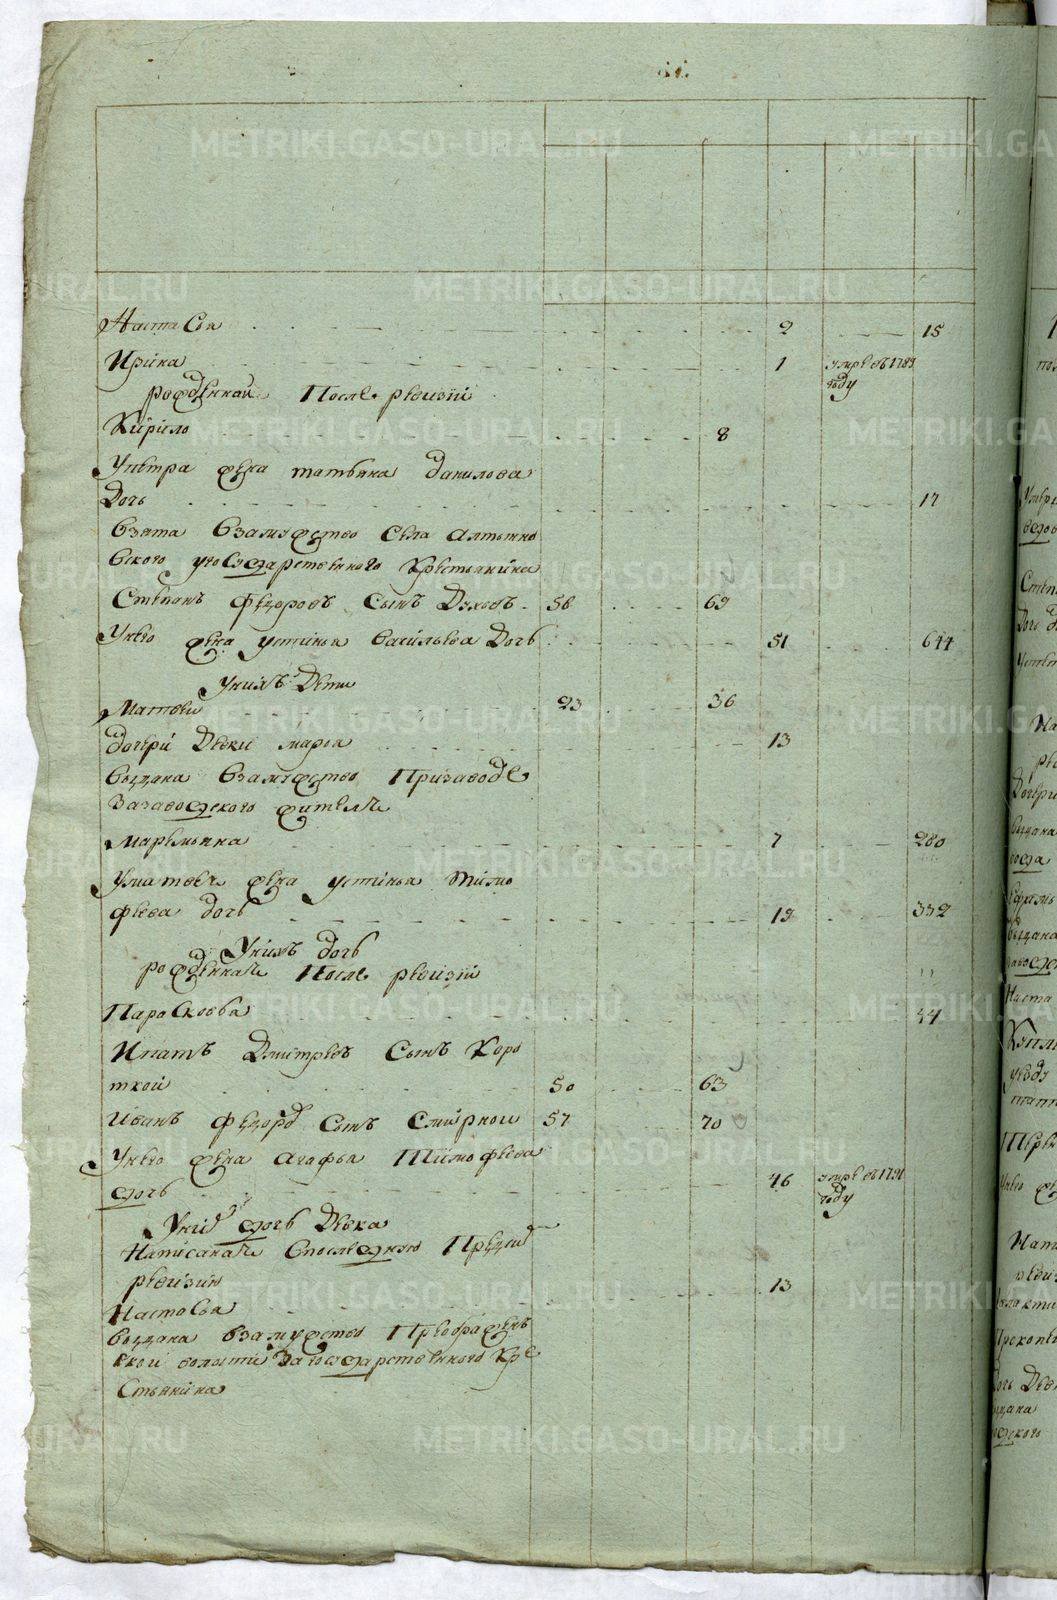 Настасья 2 15
Ирина 1 умре въ 1789
году
рожденная После ревизiи
Кирило 8
Упетра жена татьяна данилова
Дочь 17
Взята Взамужство села алтыно
вского угосударственного Крестьянина
Степанъ федоровъ сынъ Духовъ 56 69
Унево жена устинья васильева Дочь 51 64
Унихъ Дети
Матвеи 23 36
дочери Девки марья 13
выдана Взамужство Призаводе
Зазаводского жителя
Маремьяна 7 20
Уматвея жена устинья тимо
феева дочь 19 32
Унихъ дочь
рожденная После ревизiи
Парасковья 4
Ипатъ Дмитревъ сынъ Коро
ткой 50 63
Иванъ федоров Сынъ Смирнои 57 70
Унево жена агафья Тимофеева
дочь 46 умре въ 1791
году
Унихъ дочь Девка
Написаная Споследнею Пред сей
ревизию 13
Настасья
выдана взамужство Преображен
ской волости Загосударственного кре
стьянина
METRIKI.GASO-URAL.RU